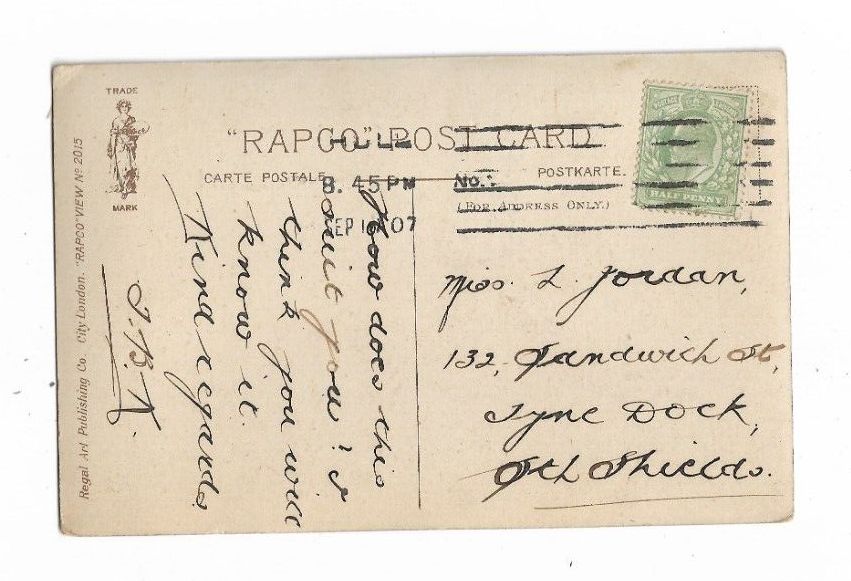 TRADE
MARK
"RAPCO" POST CARD
CARTE POSTALE
POSTKARTE.
(FOR ADDRESS ONLY.)
HULL
8.45 PM
SEP 07
HALFPENNY
How does this
suit you? I
think you will
know it.
Kind regards
Miss L. Jordan,
132, Sandwich St,
Tyne Dock,
Sth Shields.
Regal Art Publishing Co. City London. "RAPCO" VIEW No 2015